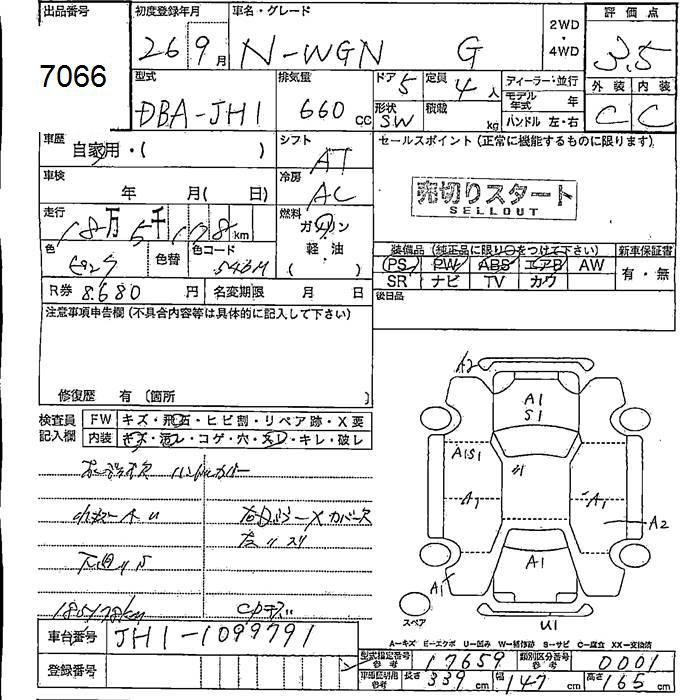 出品番号 初度登録年月 車名・グレード 2WD・4WD 評価点
7066 26 9月 N-WGN G 3.5
型式 排気量 ドア 5 定員 4人 ディーラー・並行 外装 内装
DBA-JH1 660 cc 形状 SW 積載 kg モデル年式 年 C C
ハンドル 左・右
車歴 自家用・( ) シフト AT セールスポイント(正常に機能するものに限ります)
車検 年 月( 日) 冷房 AC 売切りスタート
SELLOUT
走行 18万5千178km 燃料 ガソリン
軽・油
( )
色 色替 色コード 装備品(純正品に限り○をつけて下さい) 新車保証書
PS PW ABS エアB AW 有・無
SR ナビ TV カワ
R券 8,680 円 名変期限 月 日 後日品
注意事項申告欄(不具合内容等は具体的に記入して下さい)
修復歴 有 〔箇所 〕
検査員記入欄 FW キズ・飛石・ヒビ割・リペア跡・X要
内装 キズ・汚レ・コゲ・穴・スレ・キレ・破レ
ハンドルカバー
185178km
A2
A1
S1
A1S1
A1
A1
A2
A1
A1
スペア
U1
A-キズ E-エクボ U-凹み W-補修跡 S-サビ C-腐食 XX-交換済
車台番号 JH1-1099791
型式指定番号 参考 17659 類別区分番号 参考 0001
登録番号 長さ 339 cm 幅 147 cm 高さ 165 cm